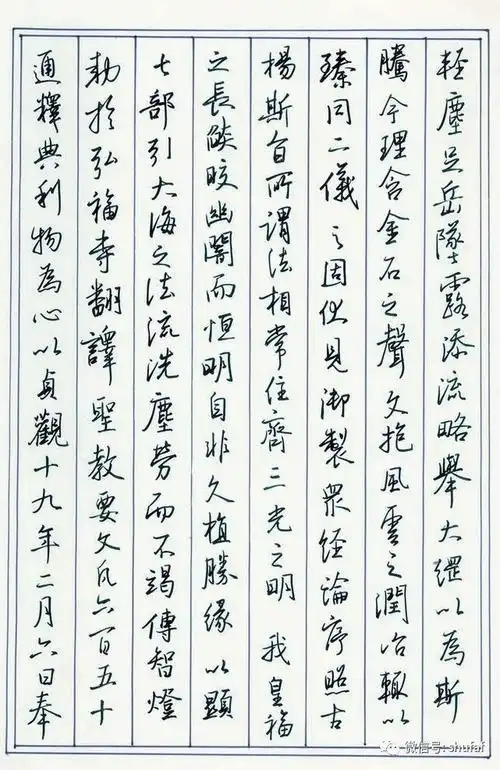 通釋典利物為心以貞觀十九年二月六日奉
勅於弘福寺翻譯聖教要文凡六百五十
七部引大海之法流洗塵勞而不竭傳智燈
之長燄皎幽闇而恒明自非久植勝緣以顯
揚斯旨所謂法相常住齊三光之明 我皇福
臻同二儀之固伏見御製眾經論序照古
騰今理含金石之聲文抱風雲之潤治輒以
輕塵足岳墜露添流略舉大綱以為斯
微信号: shufaf